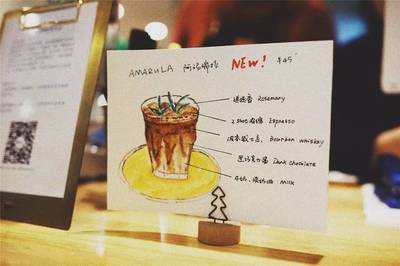 AMARULA NEW! ¥45
迷迭香 Rosemary
2 shot 浓缩 Espresso
波本威士忌, Bourbon whiskey
黑巧克力酱 Dark chocolate
牛奶、 Milk